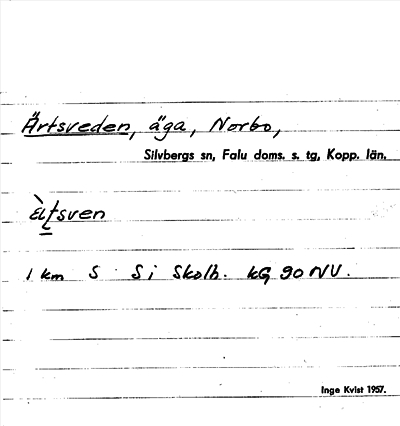 Ärtsveden, äga, Norbo,
Silvbergs sn, Falu doms. s. tg, Kopp. län.
1 km S Si Skolh. kG 90 NV.
Inge Kvist 1957.